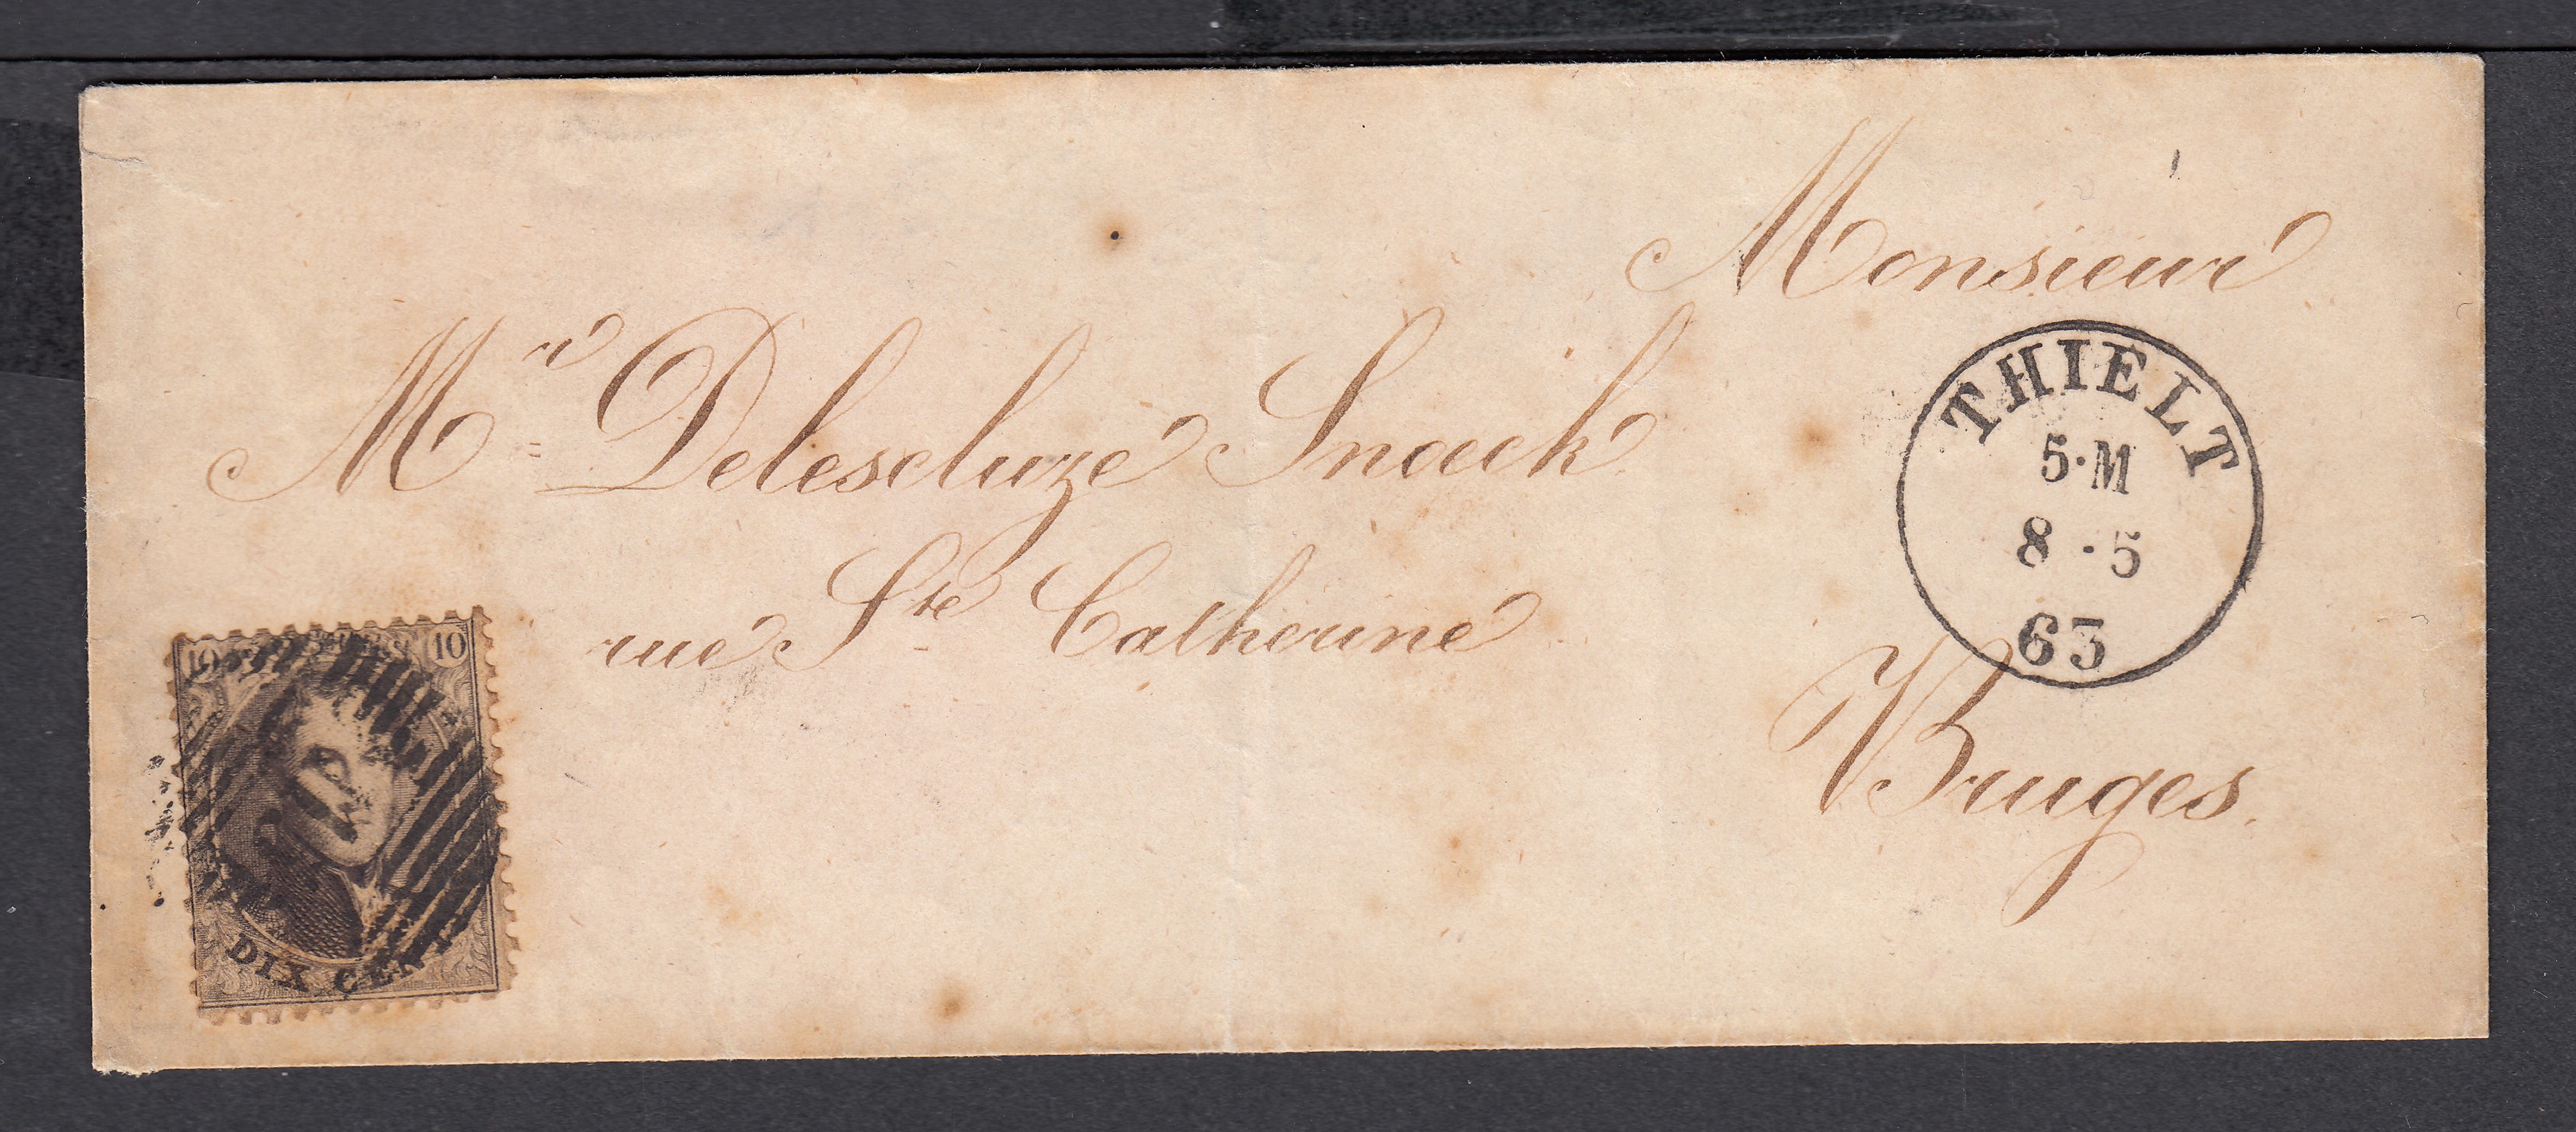 Monsieur
Mr Delescluze Snauck
rue Ste Catherine
Bruges.
THIELT
5·M
8·5
63
10 10
DIX CEN